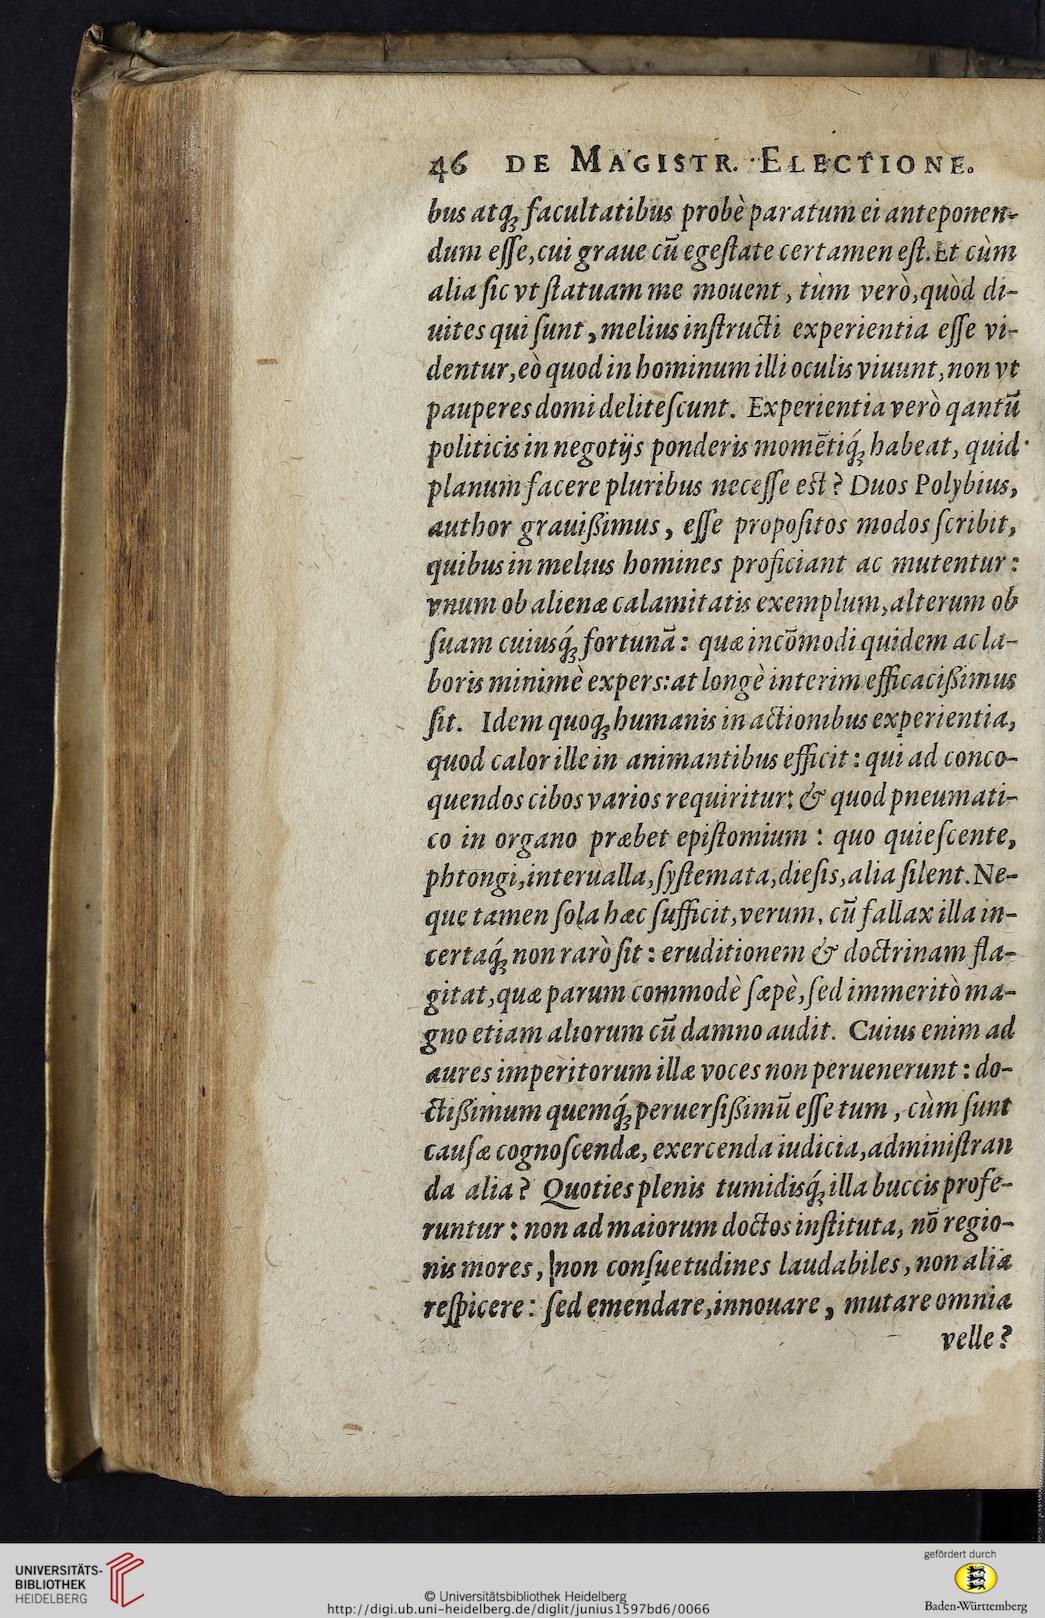 46 DE MAGISTR. ELECTIONE.
bus atq́ꝫ facultatibus probè paratum ei anteponen-
dum eſſe, cui graue cū egeſtate certamen eſt. Et cùm
alia ſic vt ſtatuam me mouent, tùm verò, quòd di-
uites qui ſunt, melius inſtructi experientia eſſe vi-
dentur, eò quod in hominum illi oculis viuunt, non vt
pauperes domi deliteſcunt. Experientia verò qantū
politicis in negotijs ponderis momētiq́ꝫ habeat, quid
planum facere pluribus neceſſe est? Duos Polybius,
author grauißimus, eſſe propoſitos modos ſcribit,
quibus in melius homines proficiant ac mutentur:
vnum ob alienæ calamitatis exemplum, alterum ob
ſuam cuiusq́ꝫ fortunā: quæ incōmodi quidem ac la-
boris minimè expers: at longè interim efficacißimus
ſit. Idem quoqꝫ humanis in actionibus experientia,
quod calor ille in animantibus efficit: qui ad conco-
quendos cibos varios requiritur: & quod pneumati-
co in organo præbet epiſtomium: quo quieſcente,
phtongi, interualla, ſyſtemata, dieſis, alia ſilent. Ne-
que tamen ſola hæc ſufficit, verum, cū fallax illa in-
certaq́ꝫ non rarò ſit: eruditionem & doctrinam fla-
gitat, quæ parum commodè ſæpè, ſed immeritò ma-
gno etiam aliorum cū damno audit. Cuius enim ad
aures imperitorum illæ voces non peruenerunt: do-
ctißimum quemq́ꝫ peruerſißimū eſſe tum, cùm ſunt
cauſæ cognoſcendæ, exercenda iudicia, adminiſtran
da alia? Quoties plenis tumidisq́ꝫ illa buccis profe-
runtur: non ad maiorum doctos inſtituta, nō regio-
nis mores, non conſuetudines laudabiles, non alia
reſpicere: ſed emendare, innouare, mutare omnia
velle?
UNIVERSITÄTS-
BIBLIOTHEK
HEIDELBERG
© Universitätsbibliothek Heidelberg
http://digi.ub.uni-heidelberg.de/diglit/junius1597bd6/0066
gefördert durch
Baden-Württemberg